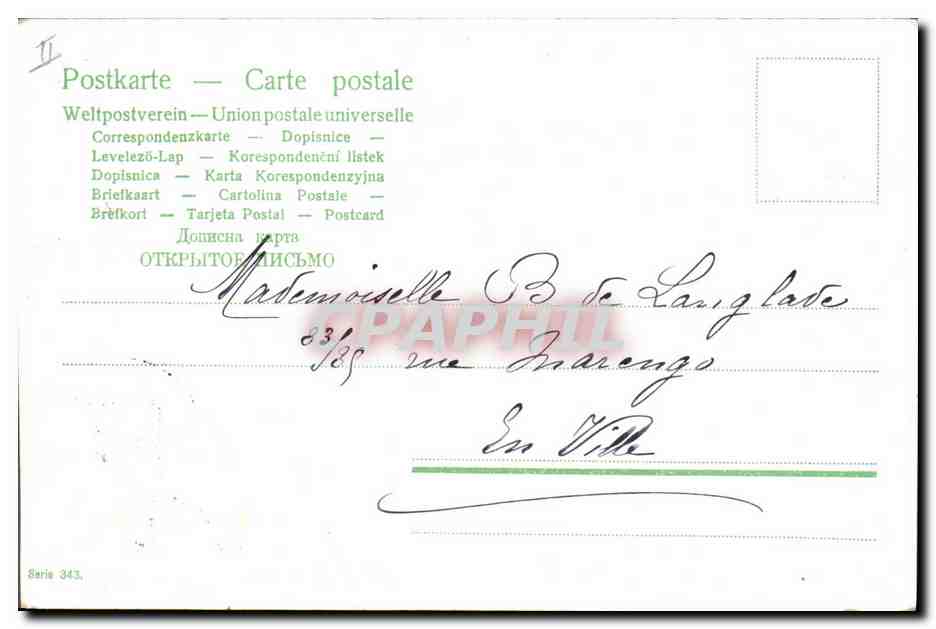 II
Postkarte — Carte postale
Weltpostverein — Union postale universelle
Correspondenzkarte — Dopisnice —
Levelező-Lap — Korespondenční listek
Dopisnica — Karta Korespondenzyjna
Briefkaart — Cartolina Postale —
Brefkort — Tarjeta Postal — Postcard
Дописна карта
ОТКРЫТОЕ ПИСЬМО
Mademoiselle B de Langlade
CPAPHIL
33/35 rue Marengo
En Ville
Serie 343.